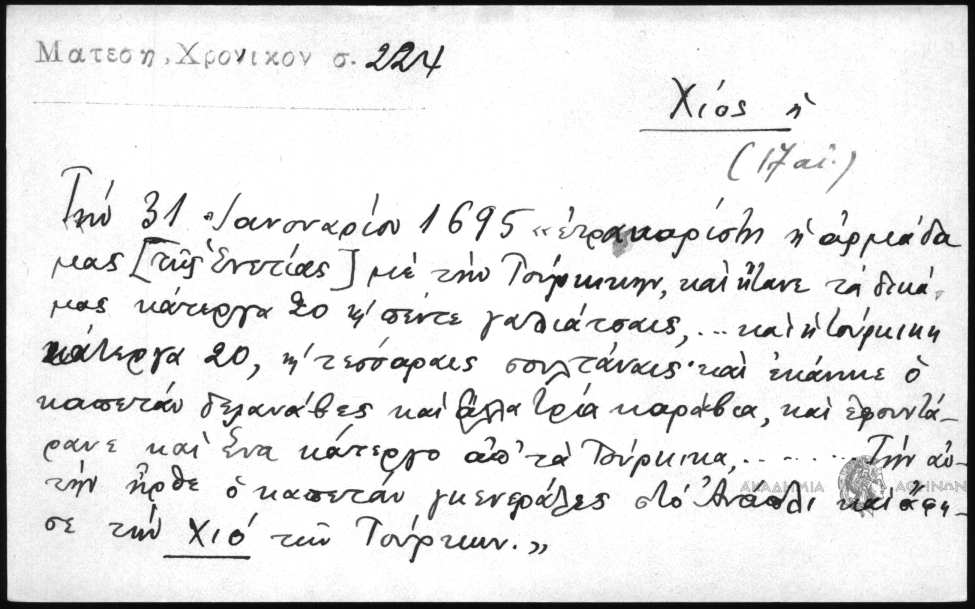 Ματεση, Χρονικον σ. 224
Χίος ἡ
(17 αἰ.)
Τήν 31 Ἰανουαρίου 1695 «ἐτρακαρίστη ἡ ἀρμάδα
μας [τῆς Ἑνετίας] μέ τήν Τούρκικην, καί ἤτανε τά δικά
μας κάτεργα 20 κ' πέντε γαλιάτσαις, ... καί ἡ τούρκικη
κάτεργα 20, κ' τεσσάραις σουλτάναις· καί ἐκάηκε ὁ
καπετάν δελανάβες καί ἄλλα τρία καράβια, καί ἐφουντά-
ρανε καί ἕνα κάτεργο ἀπ' τά Τούρκικα, ......... Τήν αὐ-
τήν ἦρθε ὁ καπετάν γκενεράλες στό Ἀνάπλι καί ἄφη-
σε τήν Χιό τῶν Τούρκων.»
ΑΚΑΔΗΜΙΑ ΑΘΗΝΩΝ